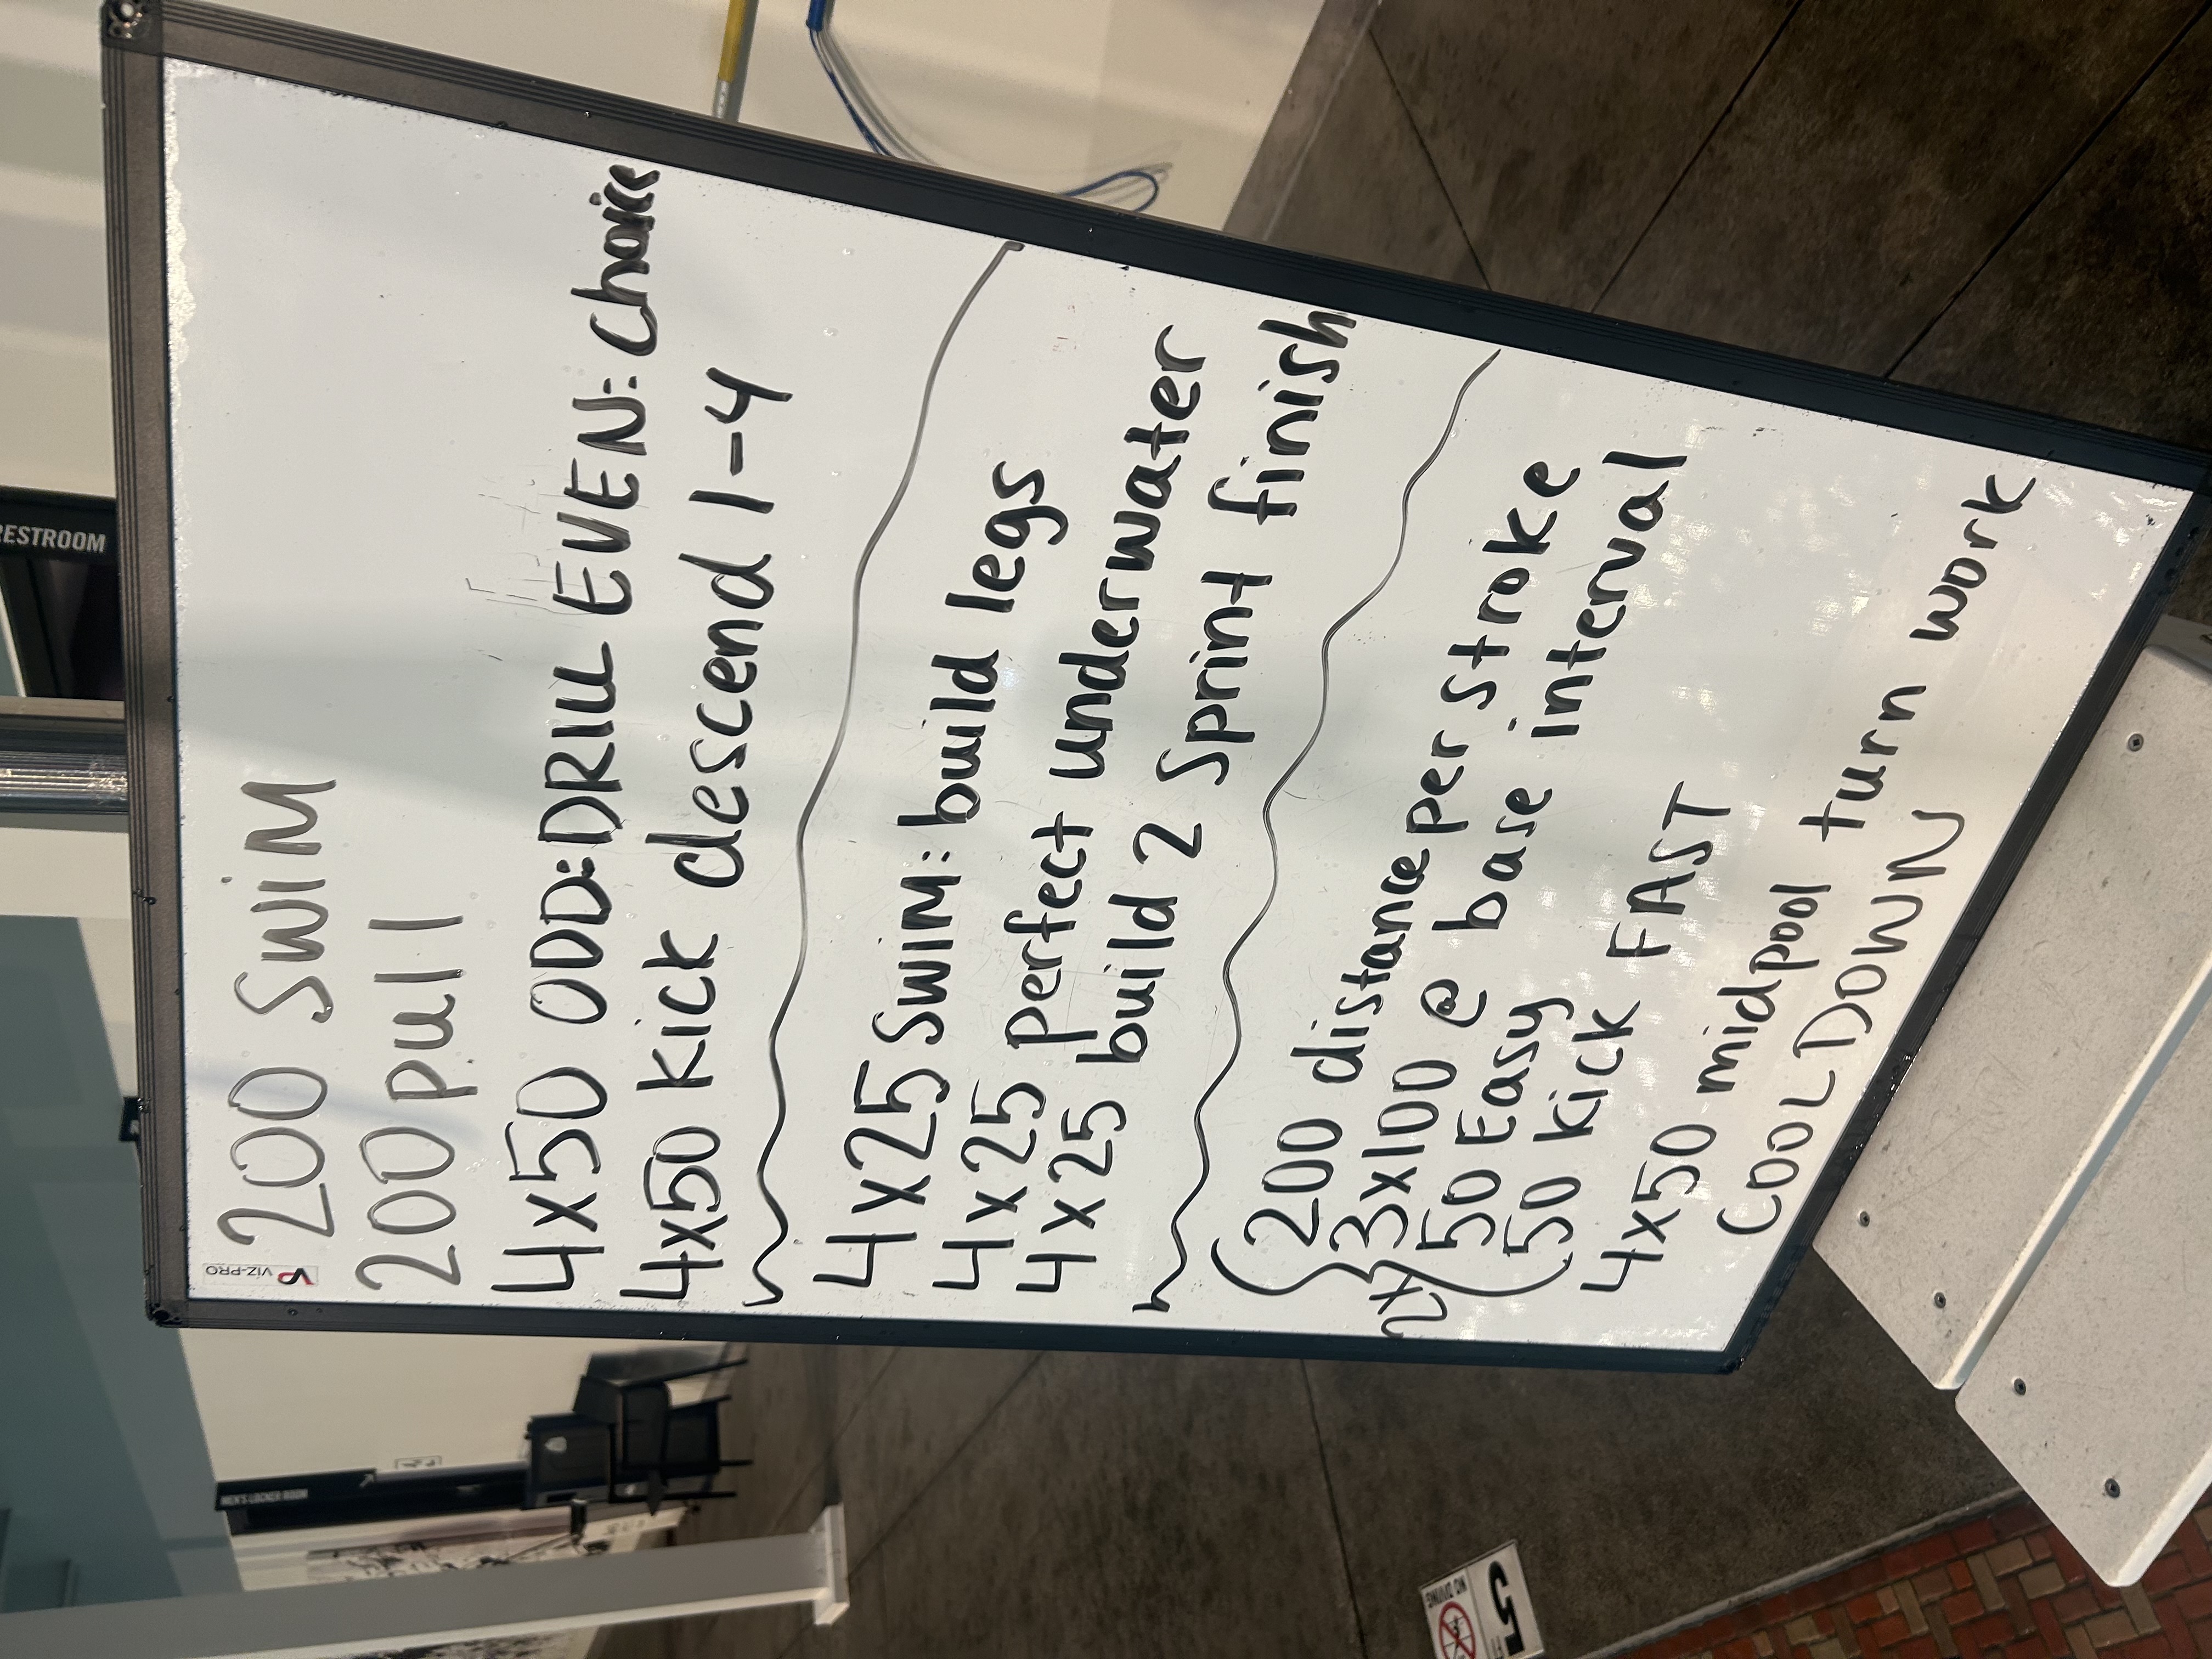 VIZ-PRO
200 SWIM
200 pull
4x50 ODD: DRILL EVEN: choice
4x50 kick descend 1-4
4x25 SWIM: build legs
4x25 perfect underwater
4x25 build 2 sprint finish
2x
200 distance per stroke
3x100 @ base interval
50 Easy
50 kick FAST
4x50 midpool turn work
COOL DOWN
RESTROOM
MEN'S LOCKER ROOM
5 FT
NO DIVING